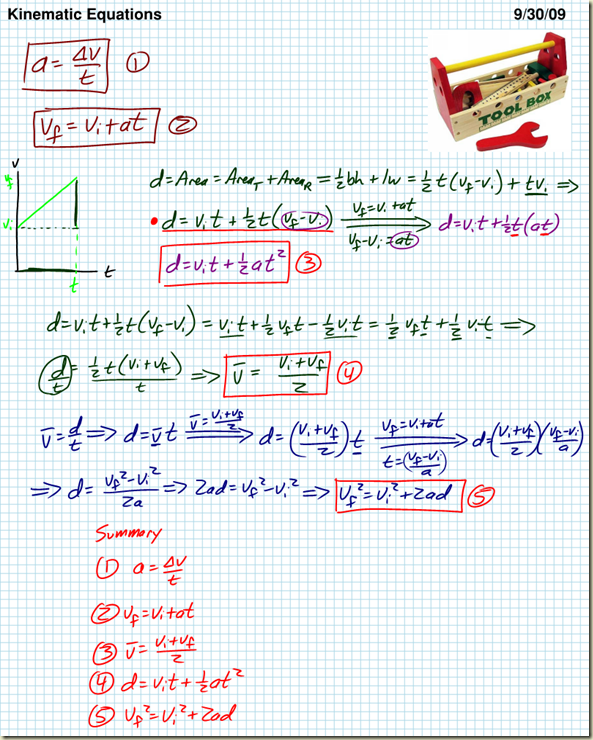 Kinematic Equations 9/30/09
a = Δv/t ①
TOOL BOX
v_f = v_i + at ②
v
v_f
v_i
t
t
d = Area = Area_T + Area_R = ½bh + lw = ½t(v_f - v_i) + tv_i ⇒
• d = v_i t + ½t(v_f - v_i) v_f = v_i + at → v_f - v_i = at d = v_i t + ½t(at)
d = v_i t + ½at² ③
d = v_i t + ½t(v_f - v_i) = v_i t + ½v_f t - ½v_i t = ½v_f t + ½v_i t ⇒
d/t = ½t(v_i + v_f)/t ⇒ v̄ = (v_i + v_f)/2 ④
v̄ = d/t ⇒ d = v̄t v̄ = (v_i + v_f)/2 ⇒ d = ((v_i + v_f)/2)t v_f = v_i + at ⇒ t = (v_f - v_i)/a d = ((v_i + v_f)/2)((v_f - v_i)/a)
⇒ d = (v_f² - v_i²)/2a ⇒ 2ad = v_f² - v_i² ⇒ v_f² = v_i² + 2ad ⑤
Summary
① a = Δv/t
② v_f = v_i + at
③ v̄ = (v_i + v_f)/2
④ d = v_i t + ½at²
⑤ v_f² = v_i² + 2ad